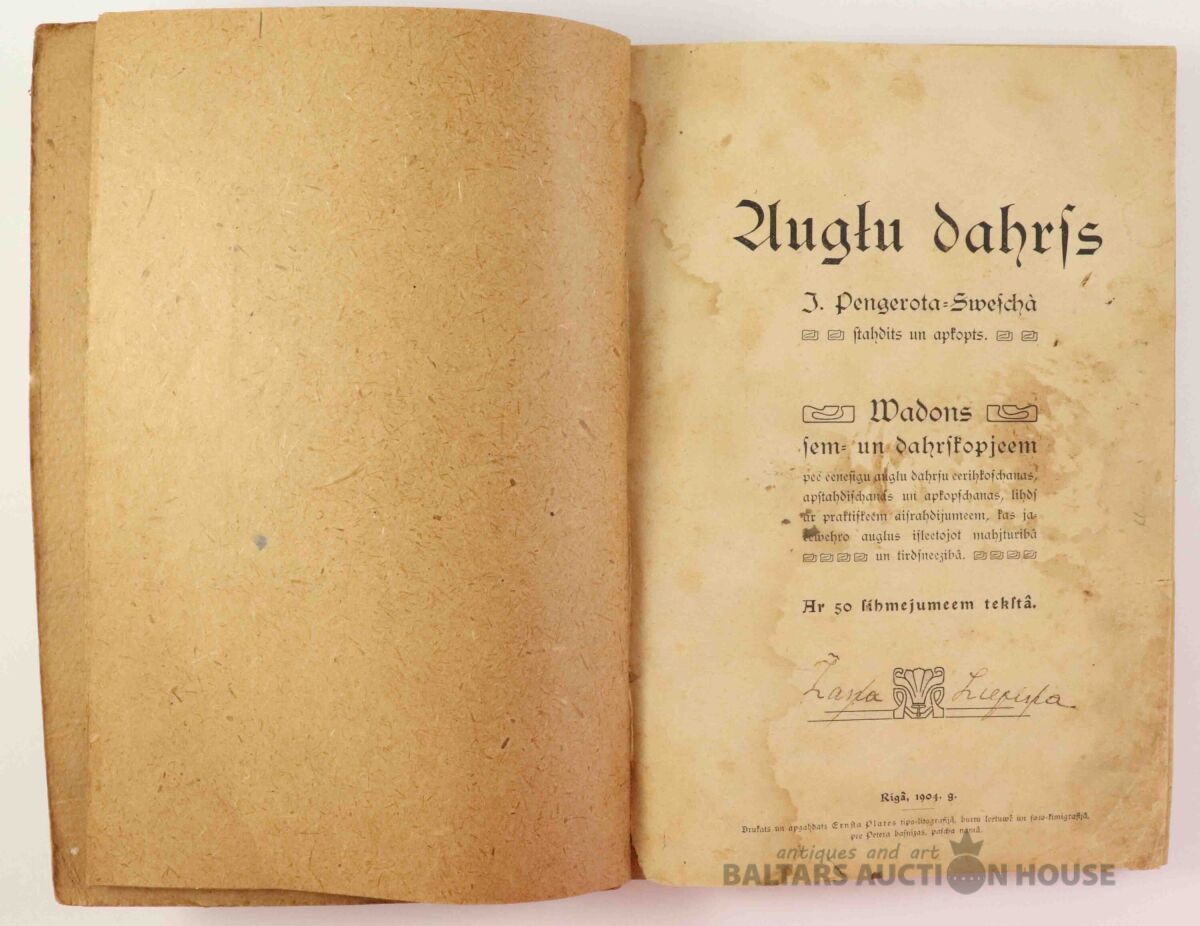 Augłu dahrſs
J. Pengerota-Sweſchà
ſtahdits un apkopts.
Wadons
ſem- un dahrſkopjeem
pee eeneſigu augļu dahrſu eerihkoſchanas,
apſtahdiſchanas un apkopſchanas, lihdſ
ar praktiſkeem aiſrahdijumeem, kas ja-
eewehro auglus iſleetojot mahjturibâ
un tirdſneezibâ.
Ar 50 ſihmejumeem tekſtâ.
Rigâ, 1904. g.
Drukats un apgahdats Ernſta Plates tipo-litografijâ, burtu leetuwê un foto-kimigrafijâ,
pee Petera baſnizas, paſcha namâ.
antiques and art
BALTARS AUCTION HOUSE